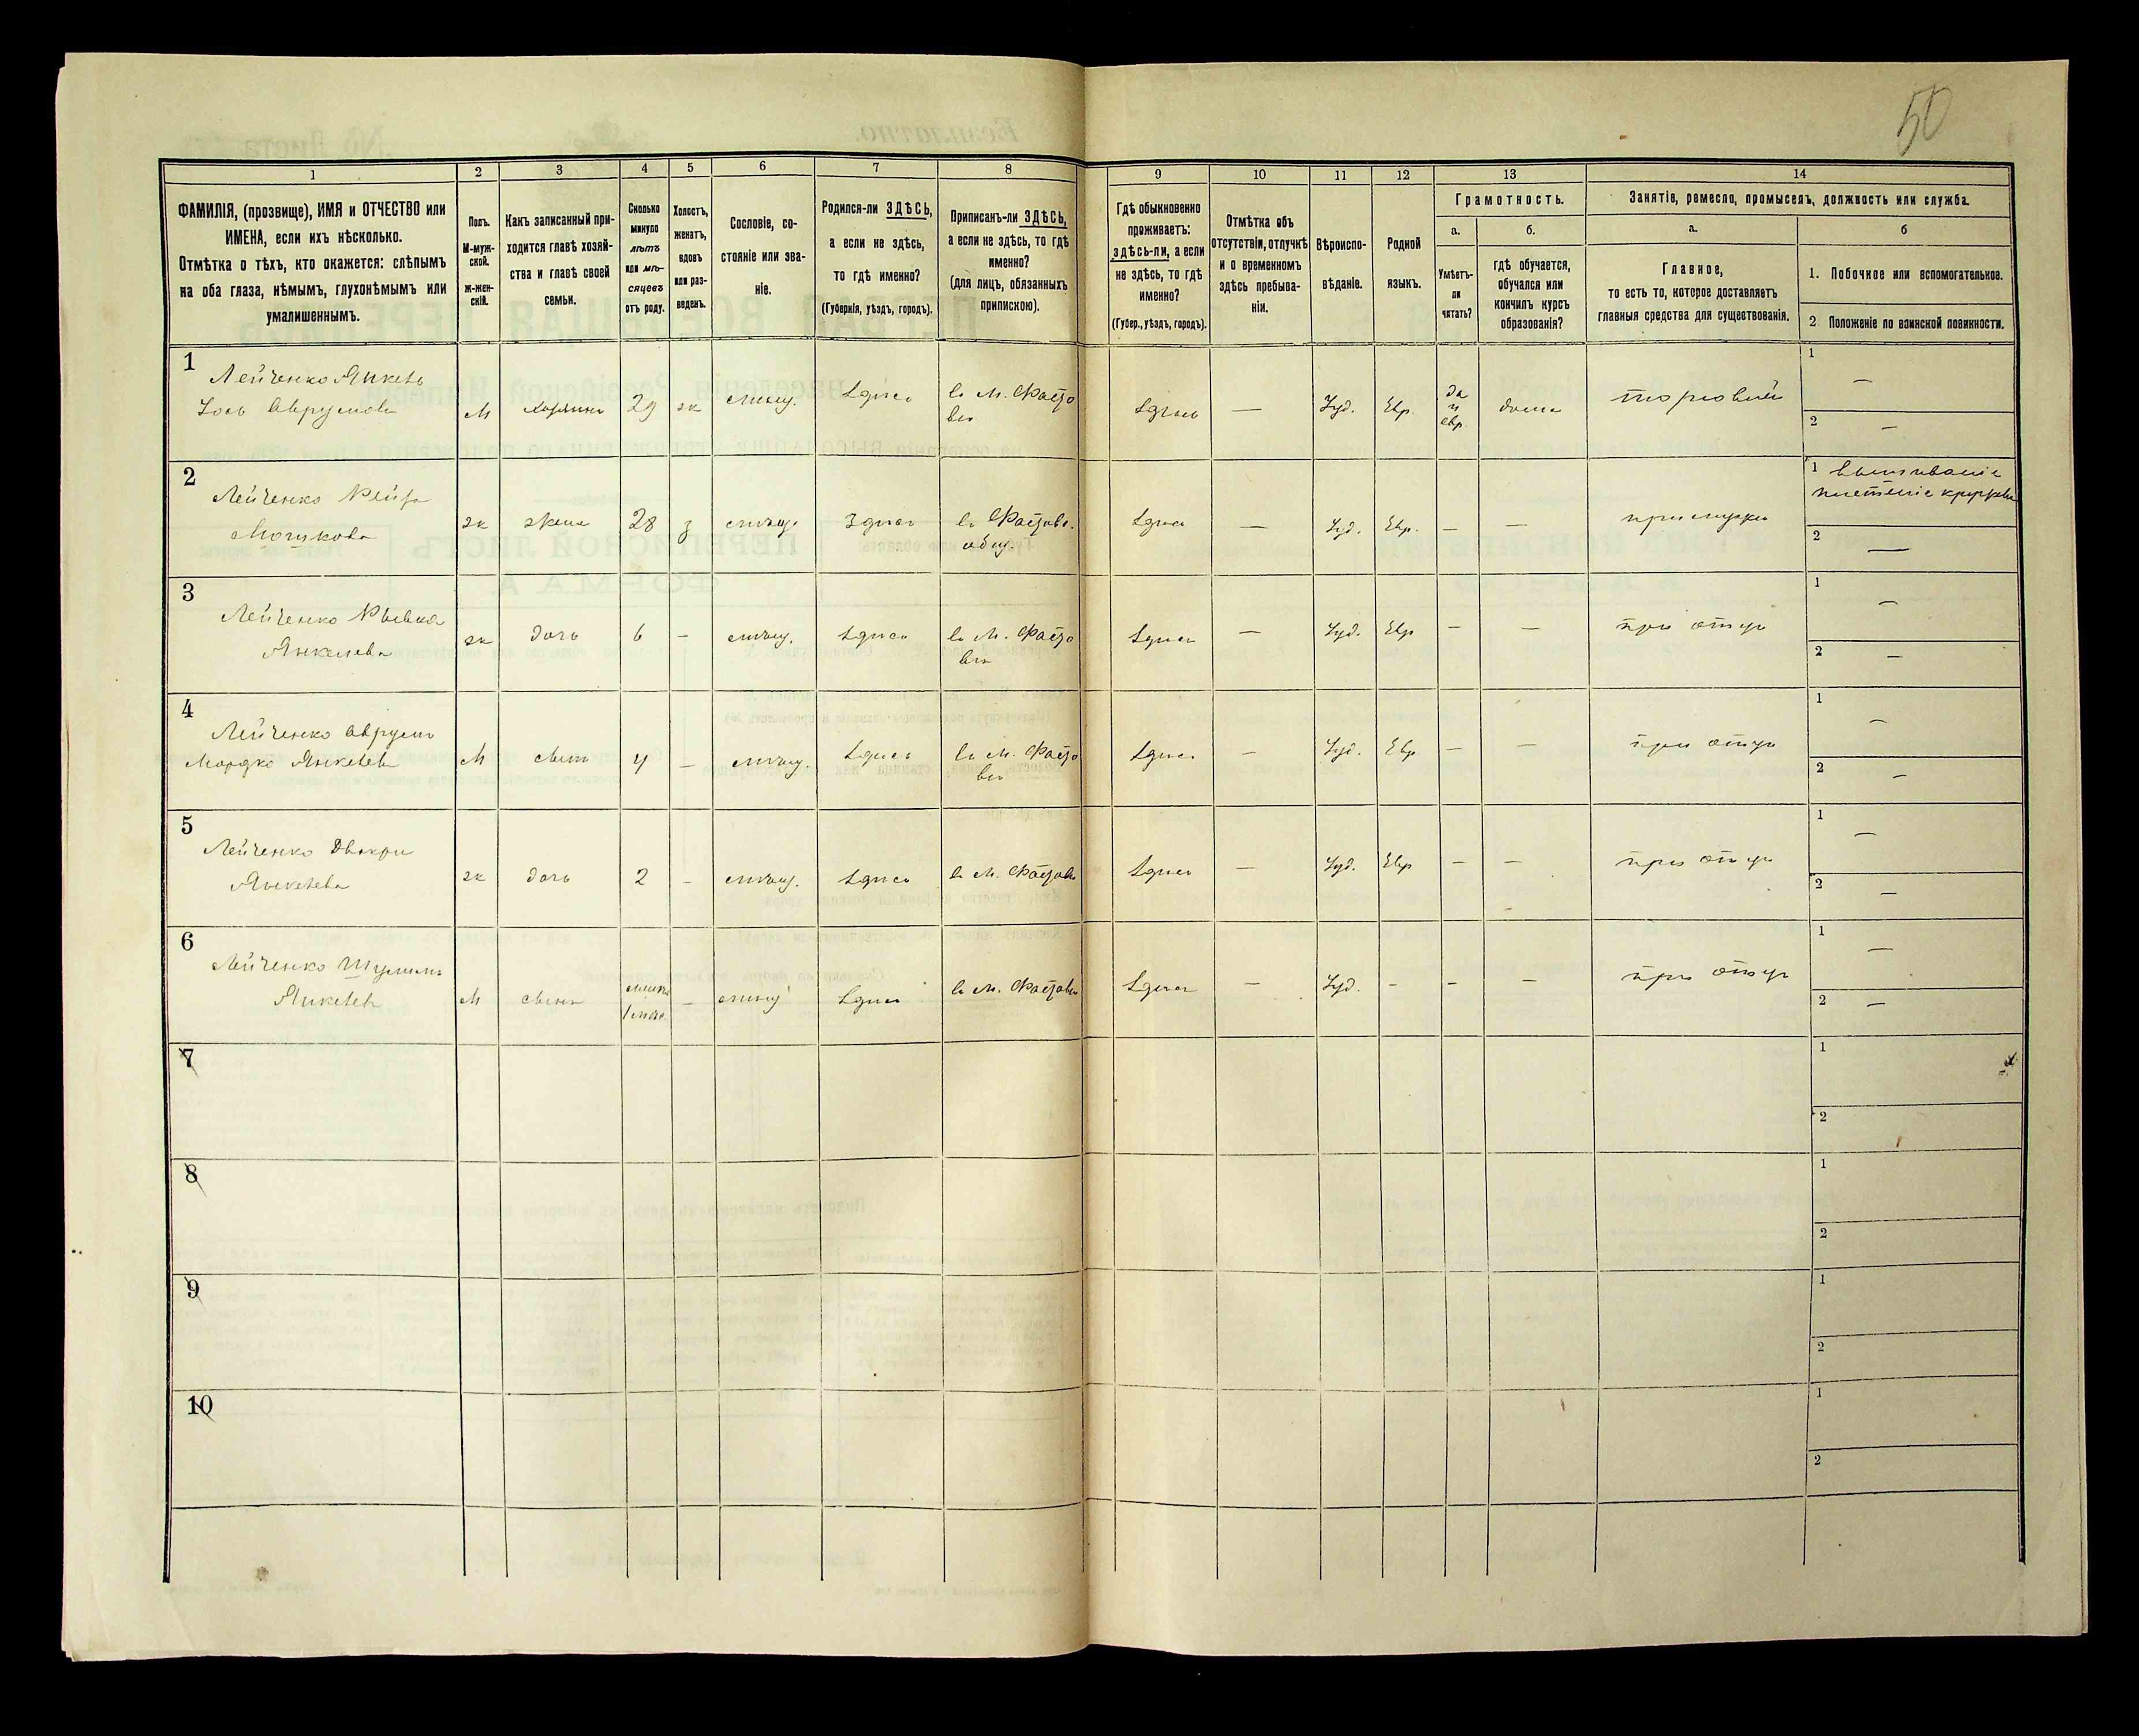 50
1
2
3
4
5
6
7
8
9
10
11
12
13
14
ФАМИЛІЯ, (прозвище), ИМЯ и ОТЧЕСТВО или
ИМЕНА, если ихъ нѣсколько.
Отмѣтка о тѣхъ, кто окажется: слѣпымъ
на оба глаза, нѣмымъ, глухонѣмымъ или
умалишеннымъ.
Полъ.
М-муж-
ской.
ж-жен-
скій.
Какъ записанный при-
ходится главѣ хозяй-
ства и главѣ своей
семьи.
Сколько
минуло
лѣтъ
или мѣ-
сяцевъ
отъ роду.
Холостъ,
женатъ,
вдовъ
или раз-
веденъ.
Сословіе, со-
стояніе или зва-
ніе.
Родился-ли ЗДѢСЬ,
а если не здѣсь,
то гдѣ именно?
(Губернія, уѣздъ, городъ).
Приписанъ-ли ЗДѢСЬ,
а если не здѣсь, то гдѣ
именно?
(для лицъ, обязанныхъ
припискою).
Гдѣ обыкновенно
проживаетъ:
здѣсь-ли, а если
не здѣсь, то гдѣ
именно?
(Губер., уѣздъ, городъ).
Отмѣтка объ
отсутствіи, отлучкѣ
и о временномъ
здѣсь пребыва-
ніи.
Вѣроиспо-
вѣданіе.
Родной
языкъ.
Грамотность.
а.
Умѣетъ-
ли
читать?
б.
гдѣ обучается,
обучался или
кончилъ курсъ
образованія?
Занятіе, ремесло, промыселъ, должность или служба.
а.
Главное,
то есть то, которое доставляетъ
главныя средства для существованія.
б
1. Побочное или вспомогательное.
2 Положеніе по воинской повинности.
1
Лейченко Янкель
Іось Аврумовъ
М
хозяинъ
29
ж
мѣщ.
здѣсь
въ М. Фасто
вѣ
здѣсь
—
Іуд.
Евр.
да
и
евр.
дома
торговля
1 —
2 —
2
Лейченко Рейза
Мошкова
ж
жена
28
з
мѣщ.
здѣсь
въ Фастов.
общ.
здѣсь
—
Іуд.
Евр.
—
—
при мужѣ
1 вышиваніе
плетеніе кружевъ
2 —
3
Лейченко Рывка
Янкелева
ж
дочь
6
–
мѣщ.
здѣсь
въ М. Фасто
вѣ
здѣсь
—
Іуд.
Евр
—
—
при отцѣ
1 —
2 —
4
Лейченко Аврумъ
Мордко Янкелевъ
М
сынъ
4
–
мѣщ.
здѣсь
въ М. Фасто
вѣ
здѣсь
—
Іуд.
Евр.
—
—
при отцѣ
1 —
2 —
5
Лейченко Двойра
Янкелева
ж
дочь
2
–
мѣщ.
здѣсь
въ М. Фастовѣ
здѣсь
—
Іуд.
Евр
—
—
при отцѣ
1 —
2 —
6
Лейченко Шулимъ
Янкелев
М
сынъ
–
мѣщ
здѣсь
въ М. Фастовѣ
здѣсь
—
Іуд.
–
–
—
при отцѣ
1 —
2 —
7
1
2
8
1
2
9
1
2
10
1
2